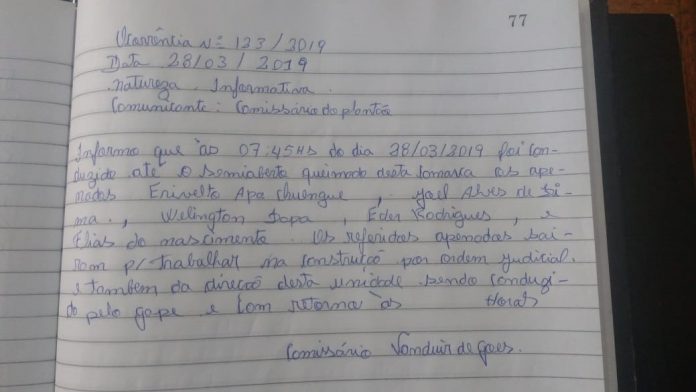 77
Ocorrência Nº 123/2019
Data 28/03/2019
Natureza. Informativa.
Comunicante: Comissário do plantão
Informo que às 07:45HS do dia 28/03/2019 foi con-
duzido até o semiaberto queimado desta comarca os ape-
nados Erivelto Apa Chuengue, Joel Alves de Si-
ma., Welington Sopa, Éder Rodrigues, e
Elias do nascimento. Os referidos apenados sai-
ram p/ trabalhar na construção por ordem judicial.
e também da direção desta unidade sendo conduzi-
do pelo gape e com retorno às Horas
Comissário Vanduir de Goes.